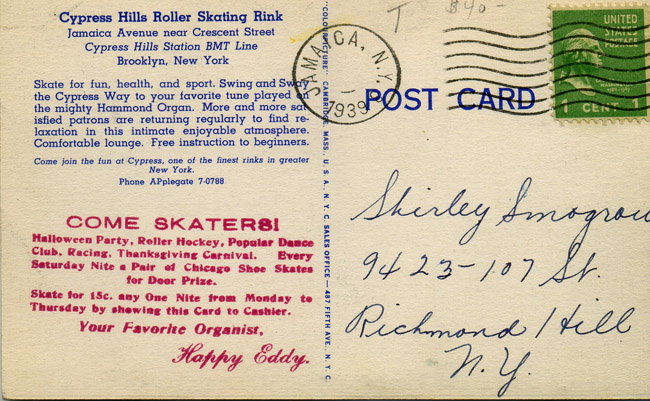 Cypress Hills Roller Skating Rink
Jamaica Avenue near Crescent Street
Cypress Hills Station BMT Line
Brooklyn, New York
Skate for fun, health, and sport. Swing and Sway
the Cypress Way to your favorite tune played on
the mighty Hammond Organ. More and more sat
isfied patrons are returning regularly to find re-
laxation in this intimate enjoyable atmosphere.
Comfortable lounge. Free instruction to beginners.
Come join the fun at Cypress, one of the finest rinks in greater
New York.
Phone APplegate 7-0788
COME SKATERS!
Halloween Party, Roller Hockey, Popular Dance
Club, Racing, Thanksgiving Carnival. Every
Saturday Nite a Pair of Chicago Shoe Skates
for Door Prize.
Skate for 15c. any One Nite from Monday to
Thursday by showing this Card to Cashier.
Your Favorite Organist,
Happy Eddy.
"COLOURPICTURE", CAMBRIDGE, MASS., U. S. A., N. Y. C. SALES OFFICE — 487 FIFTH AVE., N. Y. C.
T $40-
JAMAICA, N.Y.
1939
POST CARD
UNITED
STATES
POSTAGE
WASHINGTON
1 CENT 1
Shirley Smogrow
9423-107 St.
Richmond Hill
N.Y.